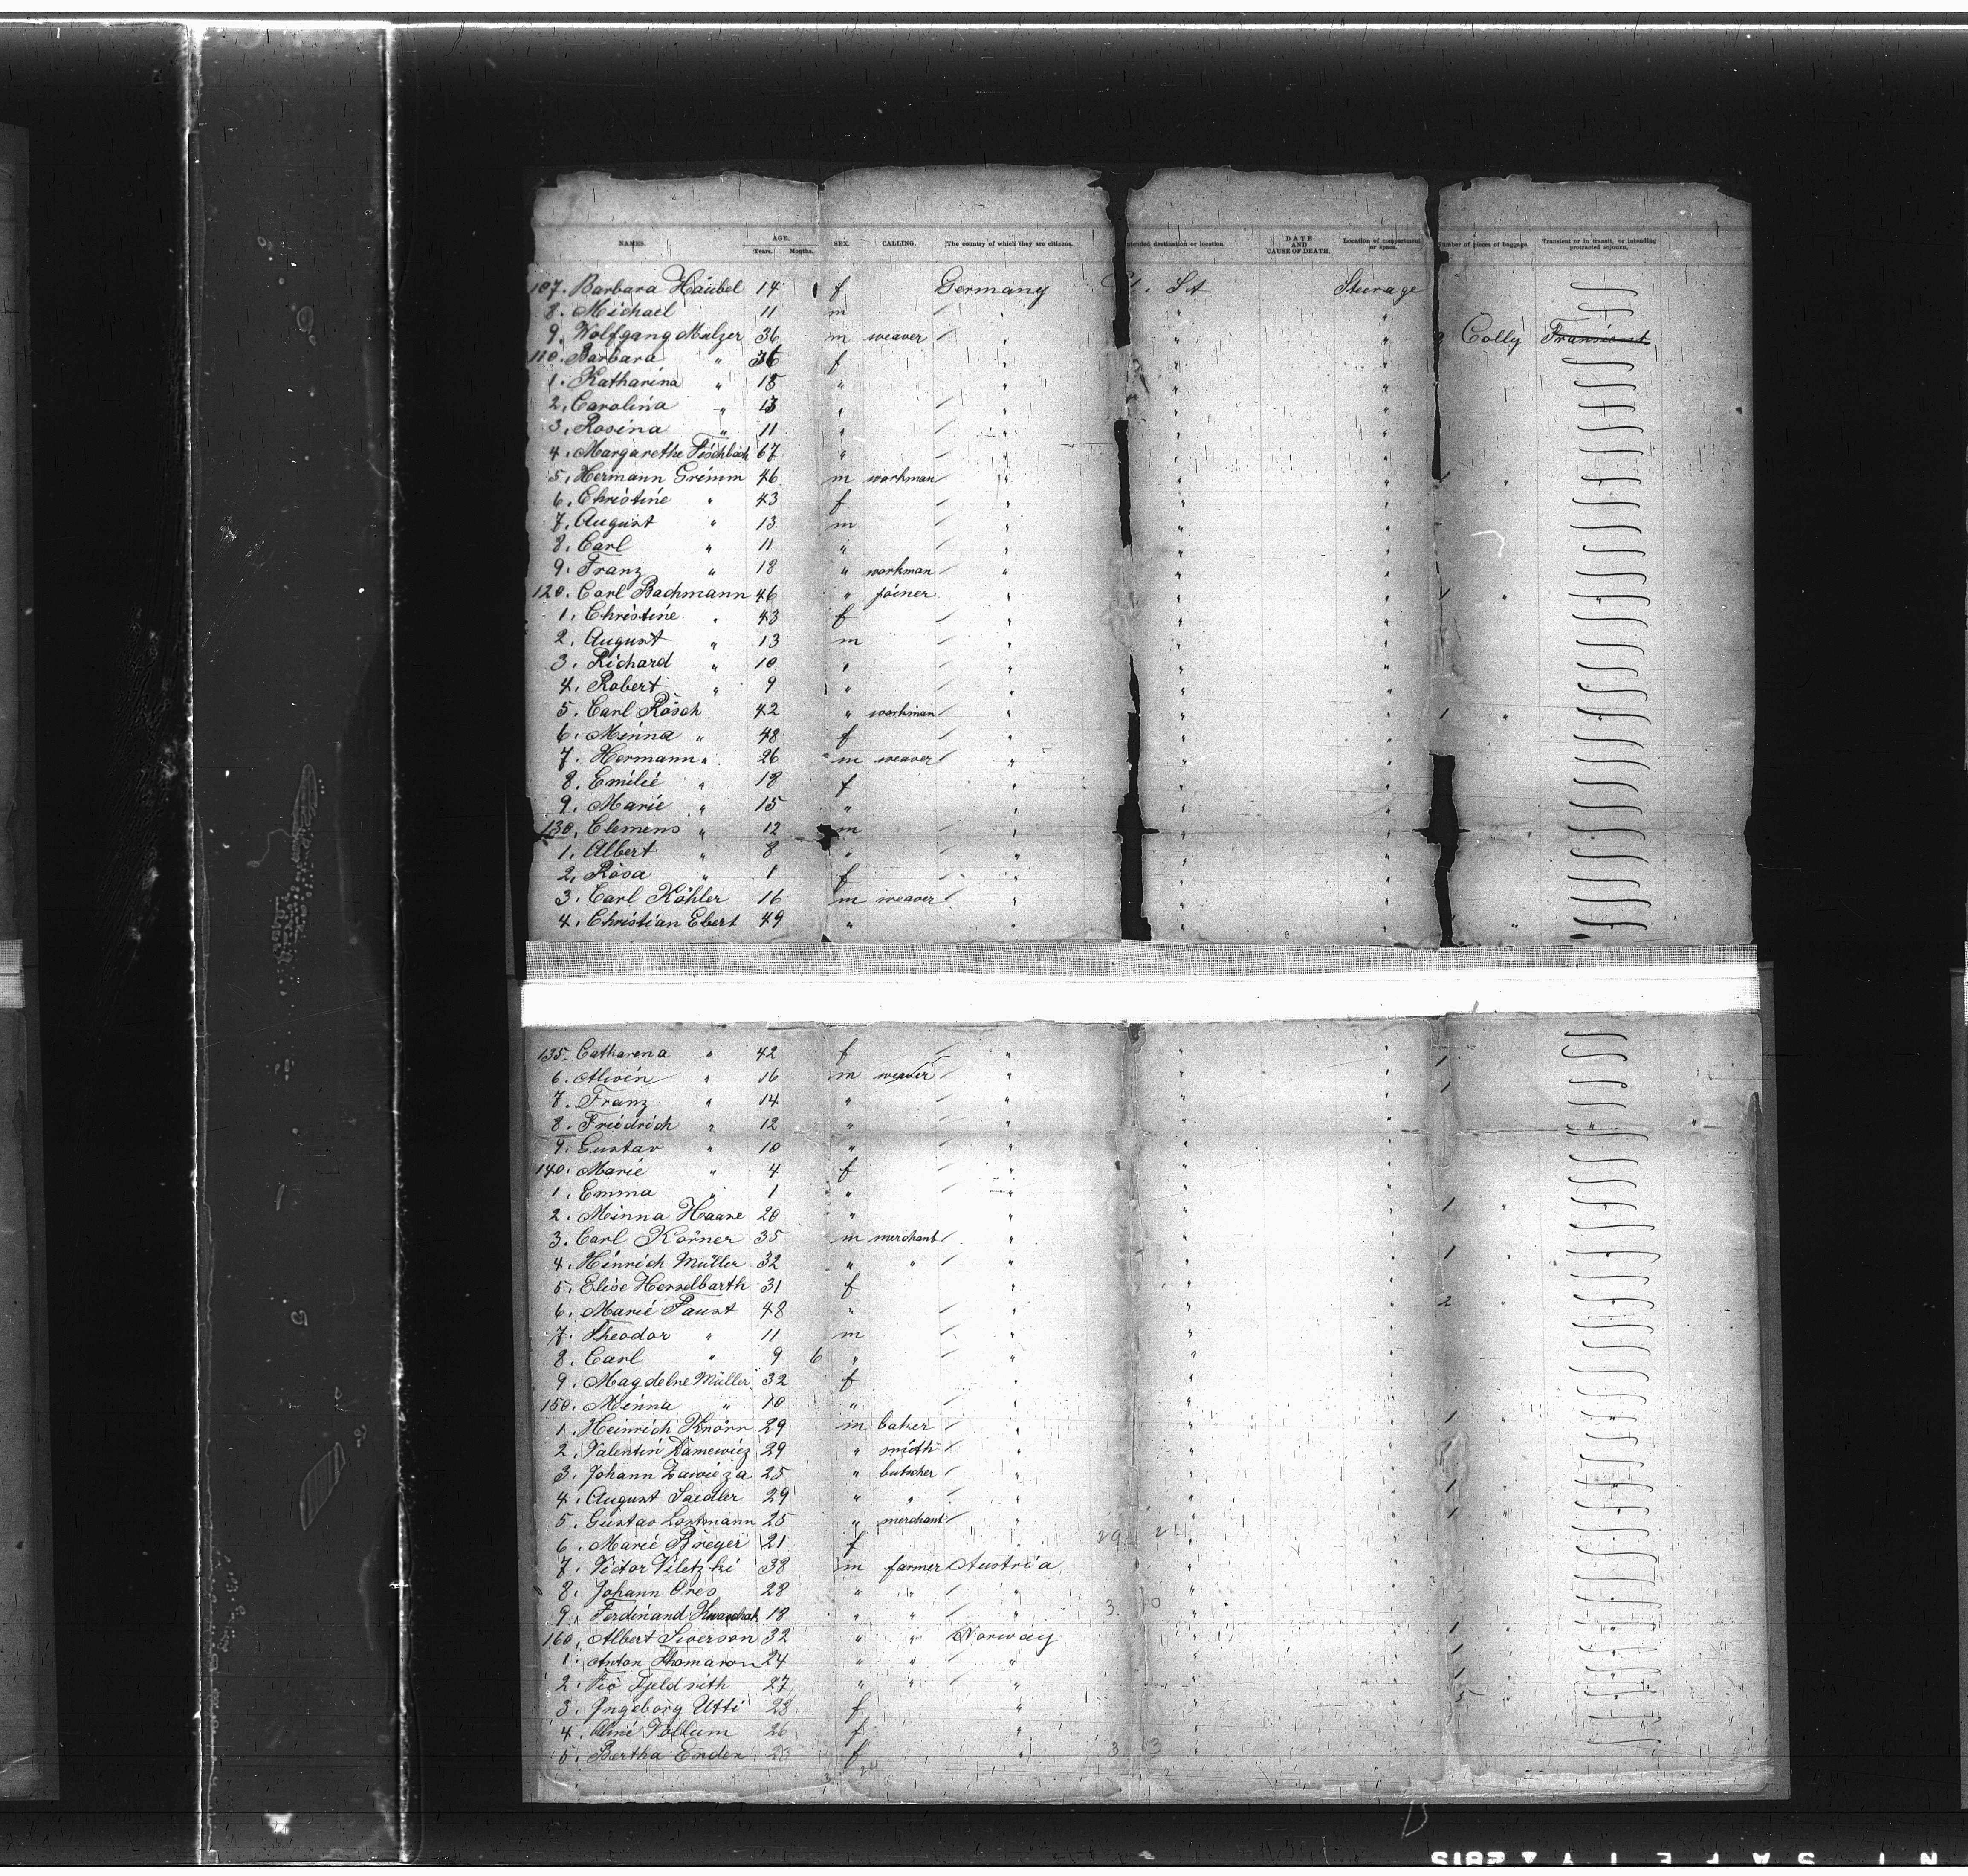 NAMES. AGE. Years. Months. SEX. CALLING. The country of which they are citizens. destination or location. DATE AND CAUSE OF DEATH. Location of compartment or space. Number of pieces of baggage. Transient or in transit, or intending protracted sojourn.
107. Barbara Haubel 14 f Germany St Sturage
8. Michael 11 m " " "
9. Wolfgang Malzer 36 m weaver " " " Colly Transient
110. Barbara " 36 f " " "
1. Katharina " 18 " " " "
2. Carolina " 13 " " " "
3. Rosina " 11 " " " "
4. Margarethe Fischbach 67 " " " "
5. Hermann Grimm 46 m workman " " " 1 "
6. Christine " 43 f " " "
7. August " 13 m " " "
8. Carl " 11 " " " "
9. Franz " 18 " workman " " "
120. Carl Bachmann 46 " joiner " " " 1 "
1. Christine " 43 f " " "
2. August " 13 m " " "
3. Richard " 10 " " " "
4. Robert " 9 " " " "
5. Carl Rösch 42 " workman " " " 1 "
6. Minna " 48 f " " "
7. Hermann " 26 m weaver " " "
8. Emilie " 18 f " " "
9. Marie " 15 " " " "
130. Clemens " 12 m " " "
1. Albert " 8 " " " "
2. Rosa " 1 f " " "
3. Carl Köhler 16 m weaver " " "
4. Christian Ebert 49 " " " " "
135. Catharena " 42 f " " " 1
6. Alwin " 16 m weaver " " " 1
7. Franz " 14 " " " "
8. Friedrich " 12 " " " " " "
9. Gustav " 10 " " " "
140. Marie " 4 f " " "
1. Emma " 1 " " " "
2. Minna Haase 20 " " " " 1 "
3. Carl Körner 35 m merchant " " "
4. Heinrich Müller 32 " " " " " 1 "
5. Elise Hesselbarth 31 f " " "
6. Marie Faust 48 " " " " 2 "
7. Theodor " 11 m " " "
8. Carl " 9 6 " " " "
9. Magdelne Müller 32 f " " "
150. Minna " 10 " " " "
1. Heinrich Knörr 29 m baker " " " 1 "
2. Valentin Damewicz 29 " smith " " "
3. Johann Zawieza 25 " butscher " " "
4. August Saedler 29 " " " " " 1 "
5. Gustav Lortmann 25 " merchant " " " 1 "
6. Marie Breyer 21 f 29 21
7. Victor Viletzki 38 m farmer Austria " "
8. Johann Ores 28 " " " " "
9. Ferdinand 18 " " " 3 0 " "
160. Albert Siverson 32 " " Norway " " 1 " "
1. Anton Thomason 24 " " " " " 1 "
2. Fjeldseth 27 " " " " " 1 "
3. Ingeborg Utti 28 f " " " 5 "
4. Vollum 26 f " " "
5. Bertha Enden 23 f " 3 3 " "
3 24